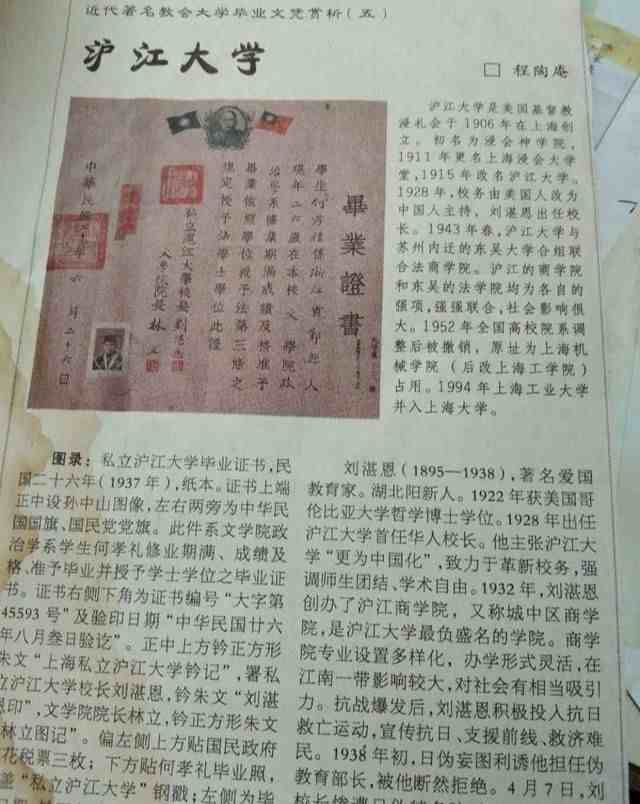 近代著名教会大学毕业文凭赏析(五)
沪江大学
□ 程陶庵
沪江大学是美国基督教
浸礼会于1906年在上海创
立。初名为浸会神学院,
1911年更名上海浸会大学
堂,1915年改名沪江大学。
1928年,校务由美国人改为
中国人主持,刘湛恩出任校
长。1943年春,沪江大学与
苏州内迁的东吴大学合组联
合法商学院。沪江的商学院
和东吴的法学院均为各自的
强项,强强联合,社会影响很
大。1952年全国高校院系调
整后被撤销,原址为上海机
械学院(后改上海工学院)
占用。1994年上海工业大学
并入上海大学。
畢業證書
畢業依照學位授予法第三條之
規定授予法學士學位此證
私立滬江大學校長劉湛恩
文學院院長林立
六月二十六日
图录:私立沪江大学毕业证书,民
国二十六年(1937年),纸本。证书上端
正中设孙中山图像,左右两旁为中华民
国国旗、国民党党旗。此件系文学院政
治学系学生何孝礼修业期满、成绩及
格、准予毕业并授予学士学位之毕业证
书。证书右侧下角为证书编号“大字第
45593号”及验印日期“中华民国廿六
年八月叁日验讫”。正中上方钤正方形
朱文“上海私立沪江大学钤记”,署私
立沪江大学校长刘湛恩,钤朱文“刘湛
恩印”,文学院院长林立,钤正方形朱文
“林立图记”。偏左侧上方贴国民政府
花税票三枚;下方贴何孝礼毕业照,
盖“私立沪江大学”钢戳;左侧为毕
刘湛恩(1895—1938),著名爱国
教育家。湖北阳新人。1922年获美国哥
伦比亚大学哲学博士学位。1928年出任
沪江大学首任华人校长。他主张沪江大
学“更为中国化”,致力于革新校务,强
调师生团结、学术自由。1932年,刘湛恩
创办了沪江商学院,又称城中区商学
院,是沪江大学最负盛名的学院。商学
院专业设置多样化,办学形式灵活,在
江南一带影响较大,对社会有相当吸引
力。抗战爆发后,刘湛恩积极投入抗日
救亡运动,宣传抗日、支援前线、救济难
民。1938年初,日伪妄图利诱他担任伪
教育部长,被他断然拒绝。4月7日,刘